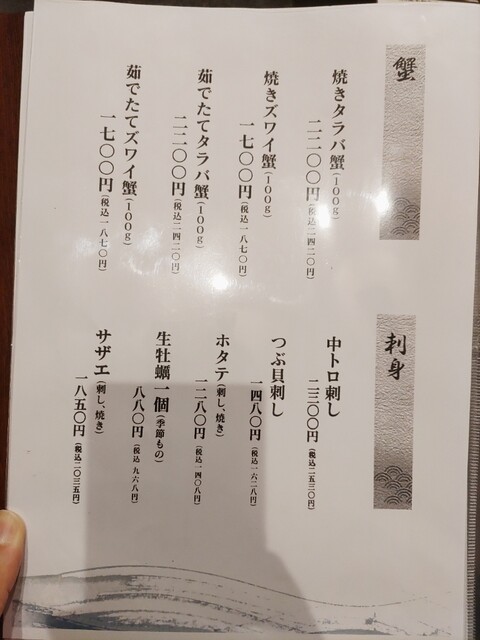 蟹
焼きタラバ蟹(100g)
二二〇〇円(税込二四二〇円)
焼きズワイ蟹(100g)
一七〇〇円(税込一八七〇円)
茹でたてタラバ蟹(100g)
二二〇〇円(税込二四二〇円)
茹でたてズワイ蟹(100g)
一七〇〇円(税込一八七〇円)
刺身
中トロ刺し
二三〇〇円(税込二五三〇円)
つぶ貝刺し
一四八〇円(税込一六二八円)
ホタテ(刺し、焼き)
一二八〇円(税込一四〇八円)
生牡蠣一個(季節もの)
八八〇円(税込 九六八円)
サザエ(刺し、焼き)
一八五〇円(税込二〇三五円)